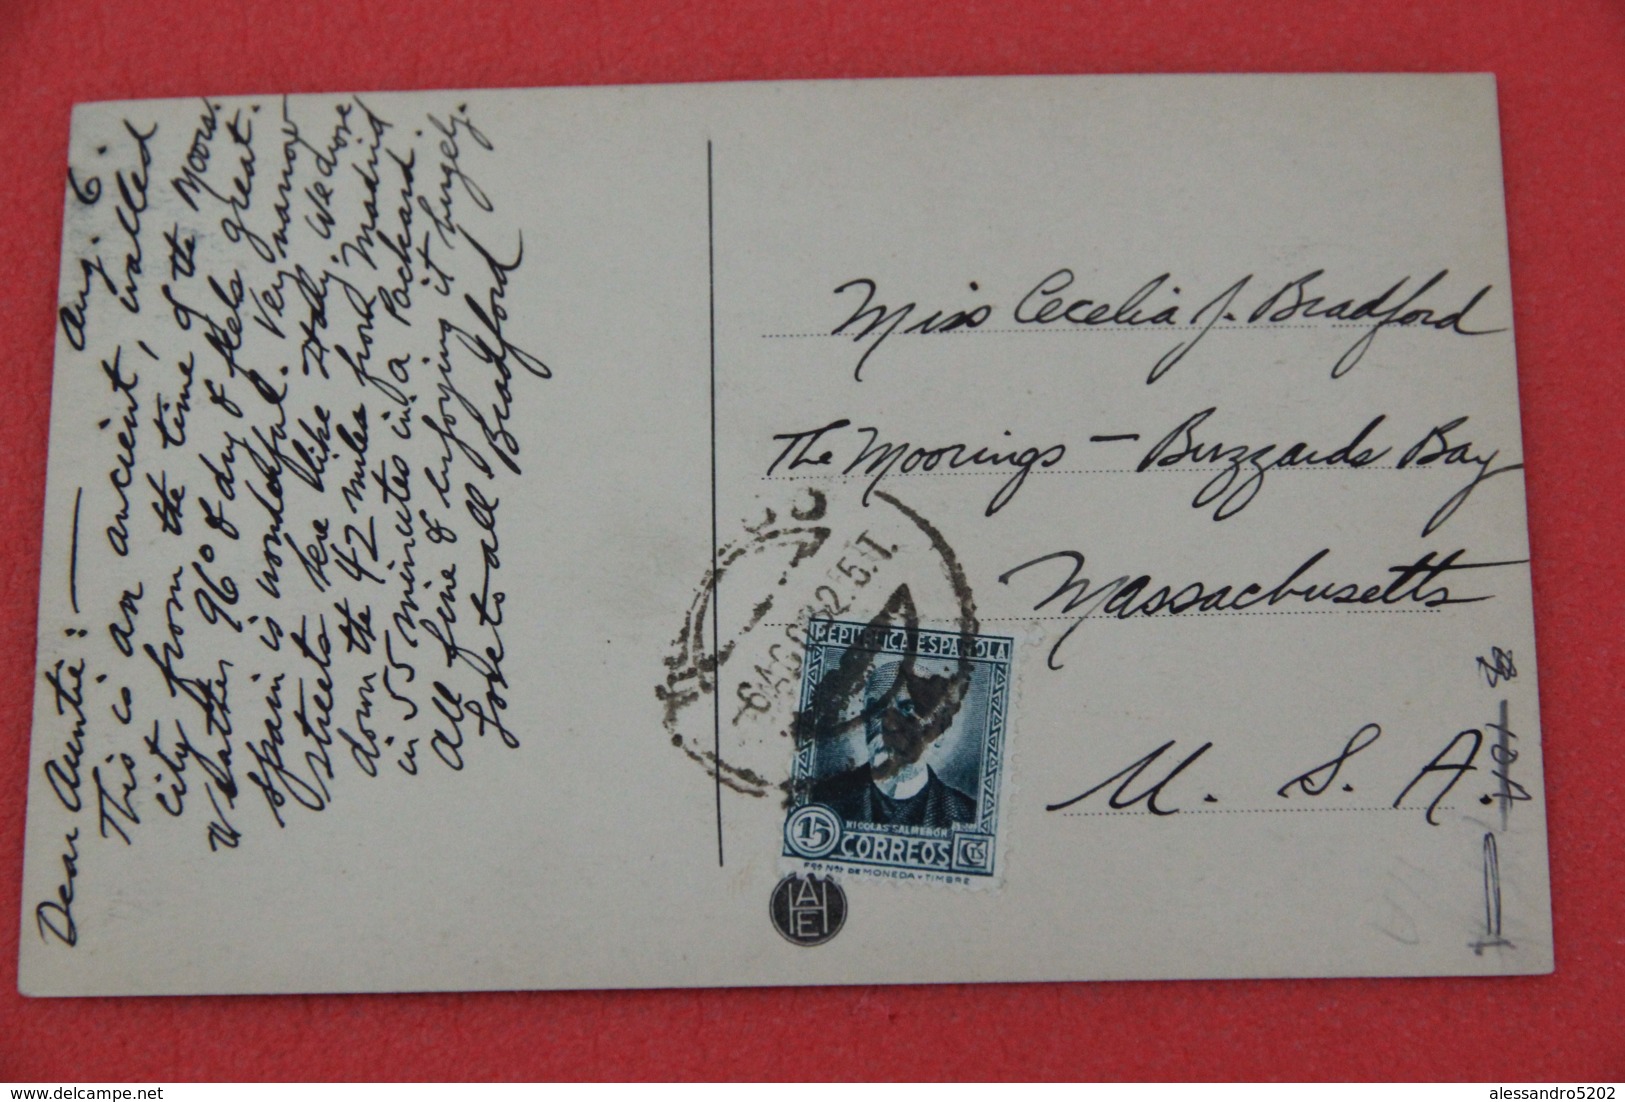 Dear Auntie: — Aug. 6.
This is an ancient, walled
city from the time of the Moors.
Weather 96° & dry & feels great.
Spain is wonderful. Very narrow
streets here like Italy. We drove
down the 42 miles from Madrid
in 55 minutes in a Packard.
All fine & enjoying it hugely.
Love to all
Bradford
Miss Cecelia J. Bradford
The Moorings — Buzzards Bay
Massachusetts
U. S. A.
6 AGO 32
REPUBLICA ESPAÑOLA
NICOLAS SALMERON
15 CORREOS CTS
FCA NAL DE MONEDA Y TIMBRE
HAE
delcampe.net
alessandro5202